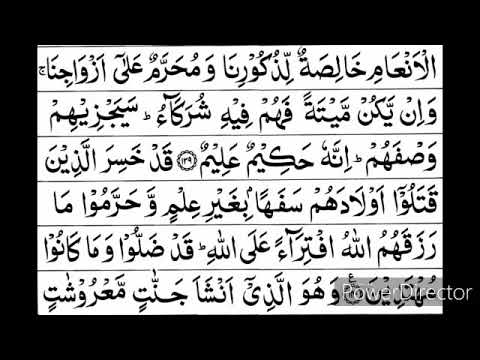 الۡاَنۡعَامِ خَالِصَةٌ لِّذُكُوۡرِنَا وَمُحَرَّمٌ عَلٰٓى اَزۡوَاجِنَا ۚ
وَاِنۡ يَّكُنۡ مَّيۡتَةً فَهُمۡ فِيۡهِ شُرَكَآءُ ؕ سَيَجۡزِيۡهِمۡ
وَصۡفَهُمۡ ؕ اِنَّهٗ حَكِيۡمٌ عَلِيۡمٌ ﴿۱۳۹﴾ قَدۡ خَسِرَ الَّذِيۡنَ
قَتَلُوۡۤا اَوۡلَادَهُمۡ سَفَهًۢا بِغَيۡرِ عِلۡمٍ وَّ حَرَّمُوۡا مَا
رَزَقَهُمُ اللّٰهُ افۡتِرَآءً عَلَى اللّٰهِ ؕ قَدۡ ضَلُّوۡا وَمَا كَانُوۡا
مُهۡتَدِيۡنَ وَهُوَ الَّذِىۡۤ اَنۡشَاَ جَنّٰتٍ مَّعۡرُوۡشٰتٍ
PowerDirector